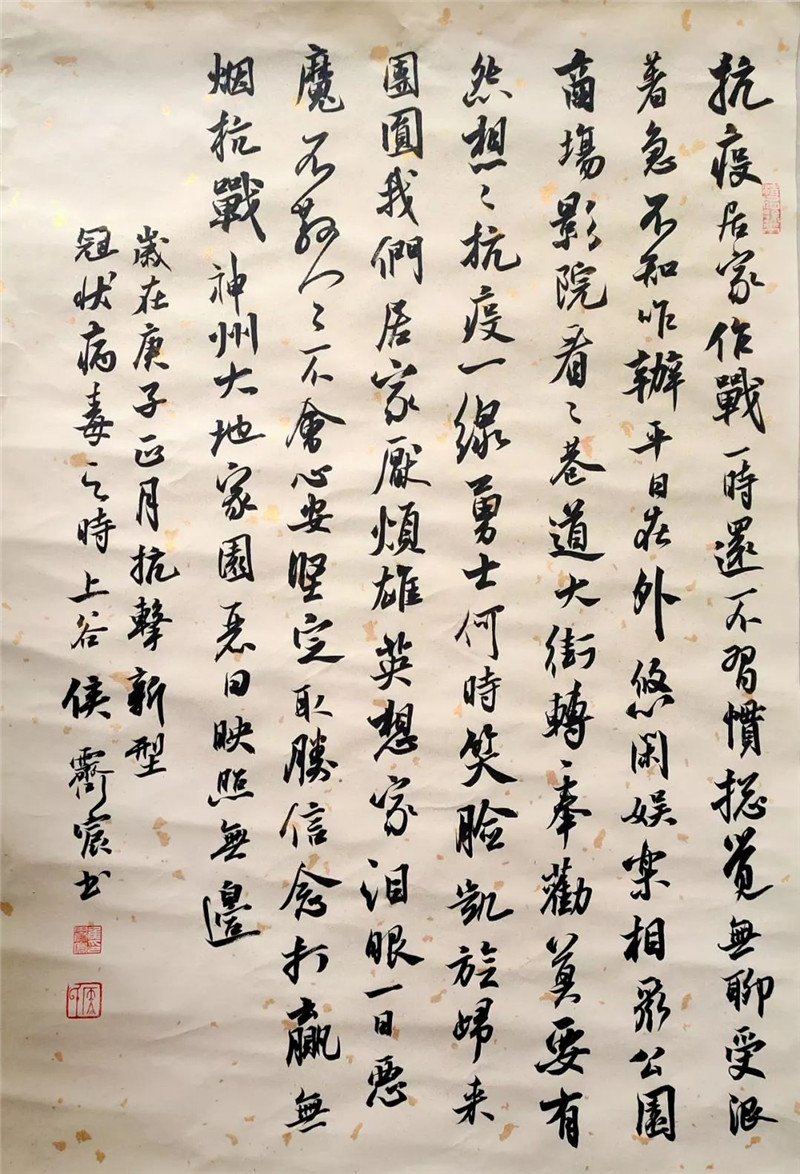 抗疫居家作戰一時還不習慣揔覺無聊受限
著急不知咋辦平日在外悠閑娛樂相聚公園
商場影院看〻巷道大街轉〻奉勸莫要有
怨想〻抗疫一線勇士何時笑臉凱旋歸来
團圓我們居家厭煩雄英想家泪眼一日惡
魔不散人〻不會心安堅定取勝信念打贏無
烟抗戰神州大地家園惡日映照無邊
歲在庚子正月抗擊新型
冠状病毒之時上谷侯霽宸书